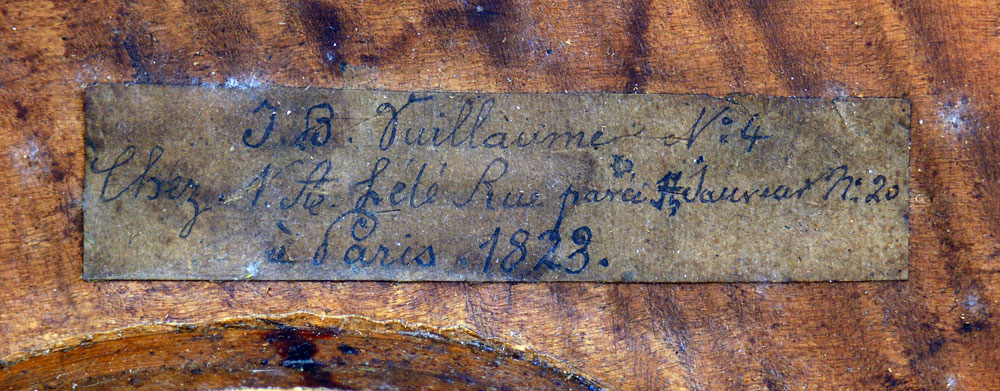 J. B. Vuillaume N°: 4
Chez N. A. Lété Rue pavée St Sauveur N°: 20
à Paris. 1823.